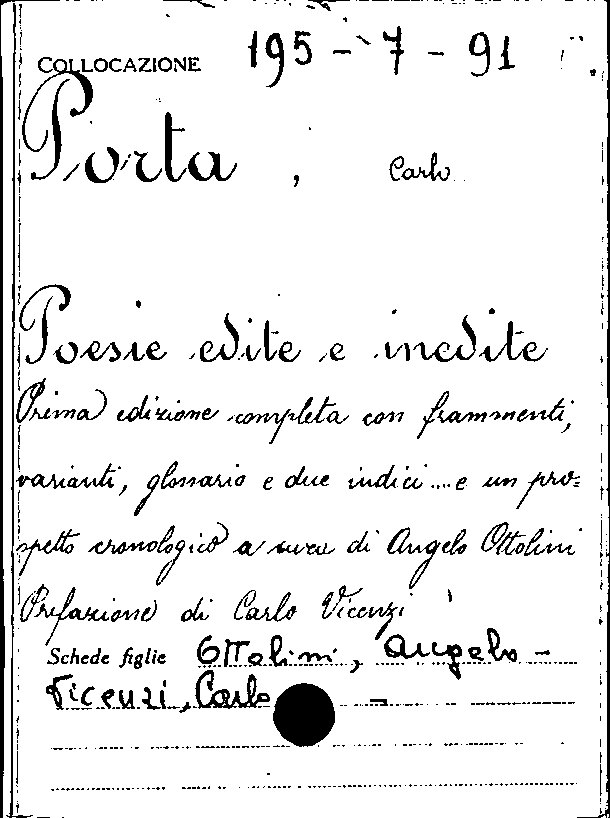 COLLOCAZIONE 195-7-91
Porta, Carlo
Poesie edite e inedite
Prima edizione completa con frammenti,
varianti, glossario e due indici .... e un pro=
spetto cronologico a cura di Angelo Ottolini
Prefazione di Carlo Vicenzi
Schede figlie Ottolini, Angelo -
Vicenzi, Carlo -